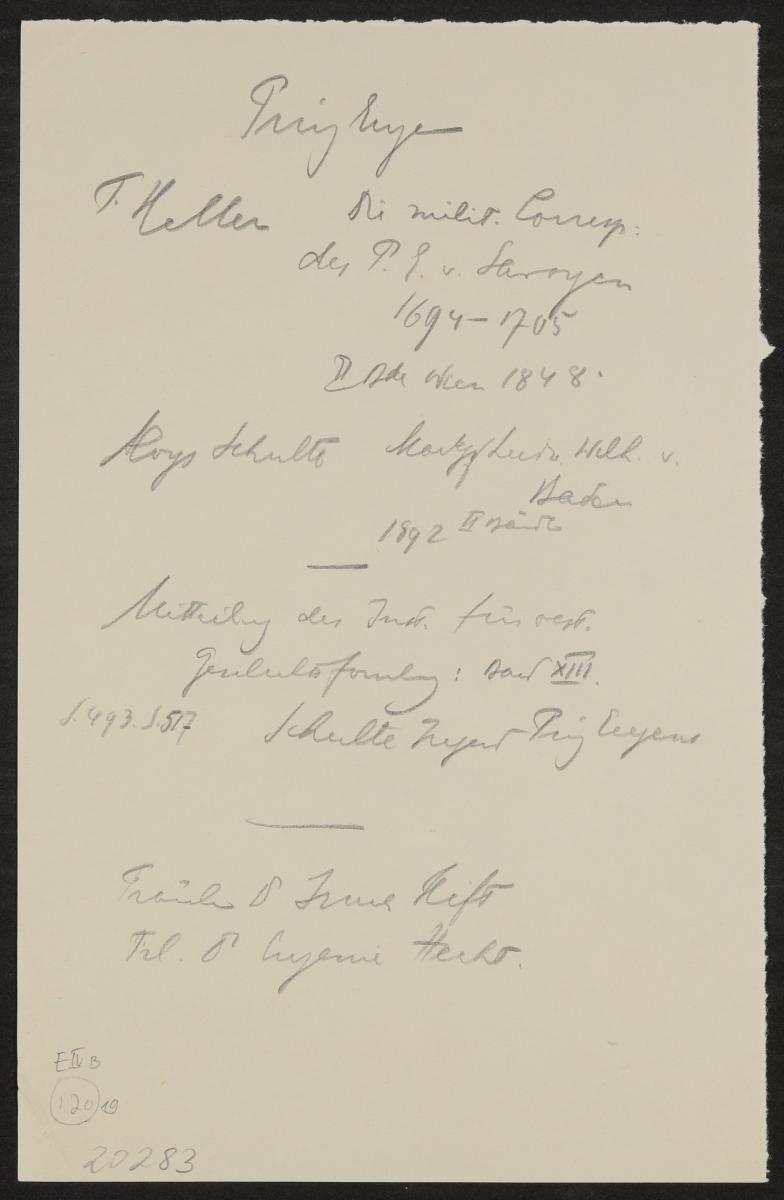 Prinz Eugen
F. Heller Die milit. Corresp.
des P. E. v. Savoyen
1694–1705
II Bde Wien 1848.
Aloys Schulte Markgf Ludw. Wilh. v.
Baden
1892 II Bände
Mittheilung des Inst. für oest.
Geschichtsforschung: Band XIII.
S. 493. S. 517 Schulte Jugend Prinz Eugens
Fräulein Dr Irma Hift
Frl. Dr Eugenie Hecht.
E IV B
120 19
20283